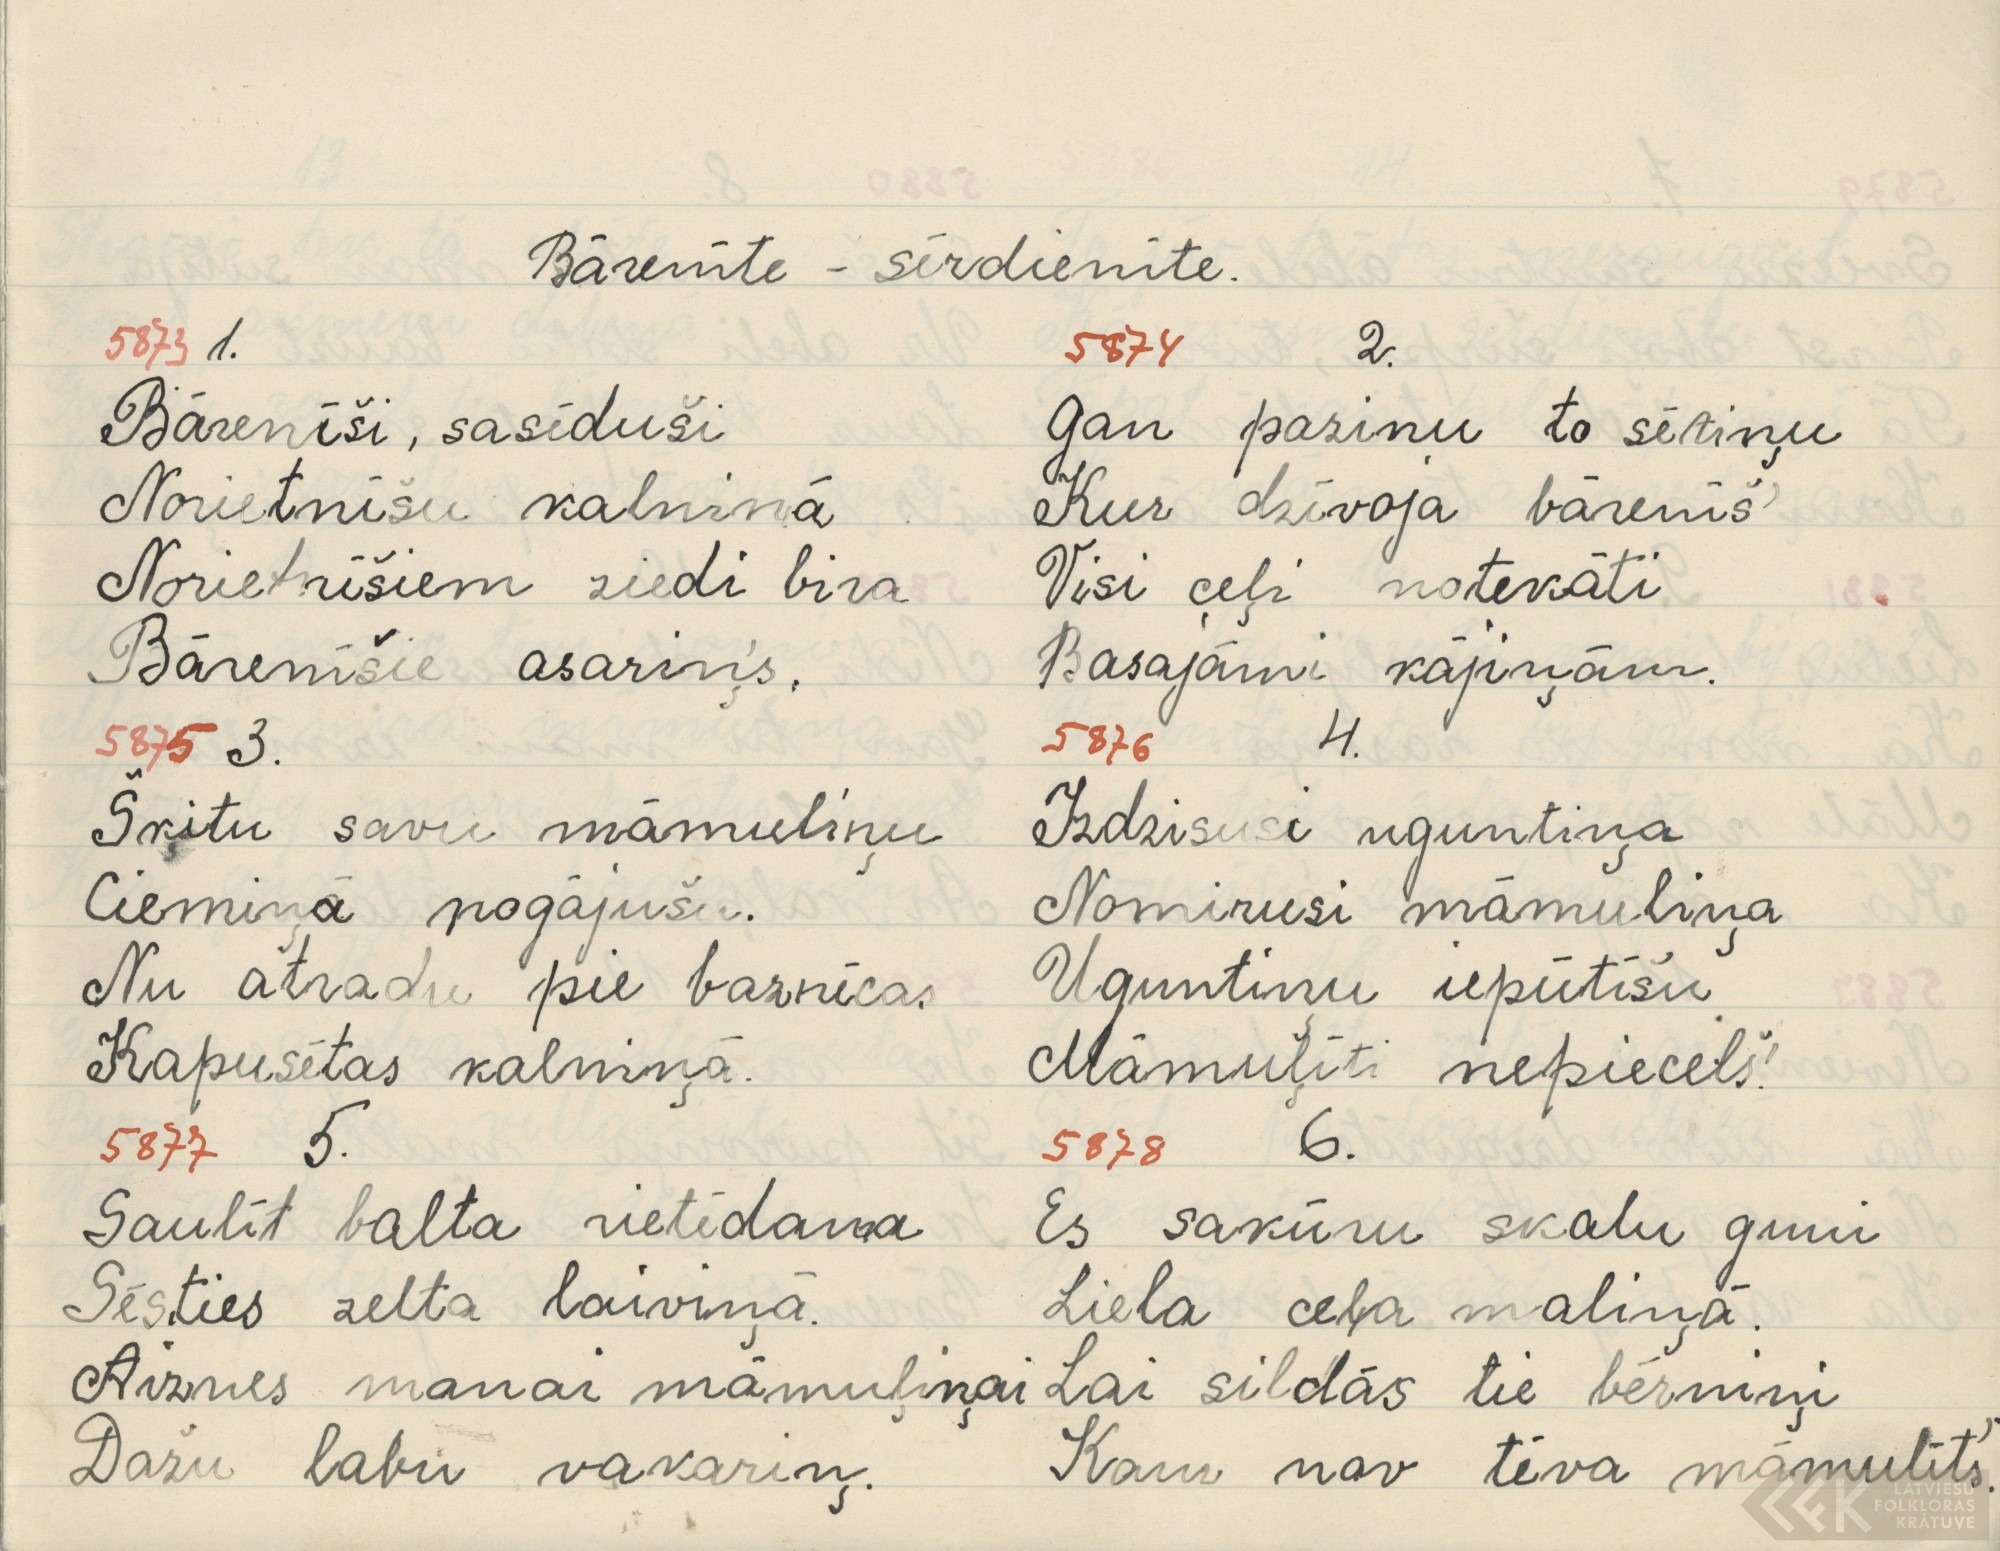 Bārenīte - sērdienīte.
5873 1.
Bārenīši, sasēduši
Norietnīšu kalniņā
Norietnīšiem ziedi bira
Bārenīšie asariņ's.
5874 2.
Gan paziņu to sētiņu
Kur dzīvoja bārenīš'
Visi ceļi notekāti
Basajāmi kājiņām.
5875 3.
Šķitu savu māmuliņu
Ciemiņā nogājušu.
Nu atradu pie baznīcas
Kapusētas kalniņā.
5876 4.
Izdzisusi uguntiņa
Nomirusi māmuliņa
Uguntiņu iepūtīšu
Māmuļīti nepiecelš'.
5877 5.
Saulīt balta rietēdama
Sēsties zelta laiviņā.
Aiznes manai māmuļiņai
Dažu labu vakariņ.
5878 6.
Es sakūru skalu guni
Liela ceļa maliņā.
Lai sildās tie bērniņi
Kam nav tēva māmulīt's.
LATVIEŠU
FOLKLORAS
KRĀTUVE